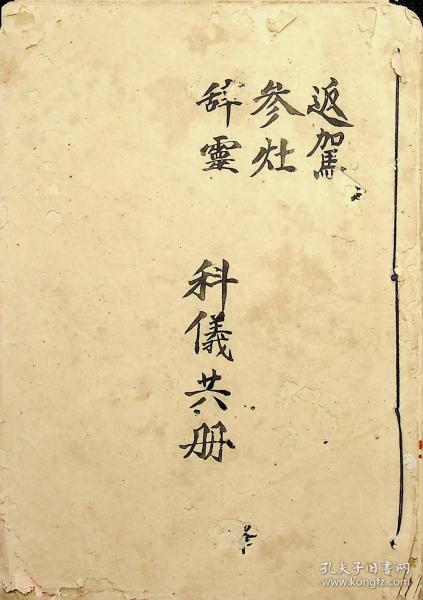 返駕
参灶
辞靈
科儀共册
孔夫子旧书网
www.kongfz.com